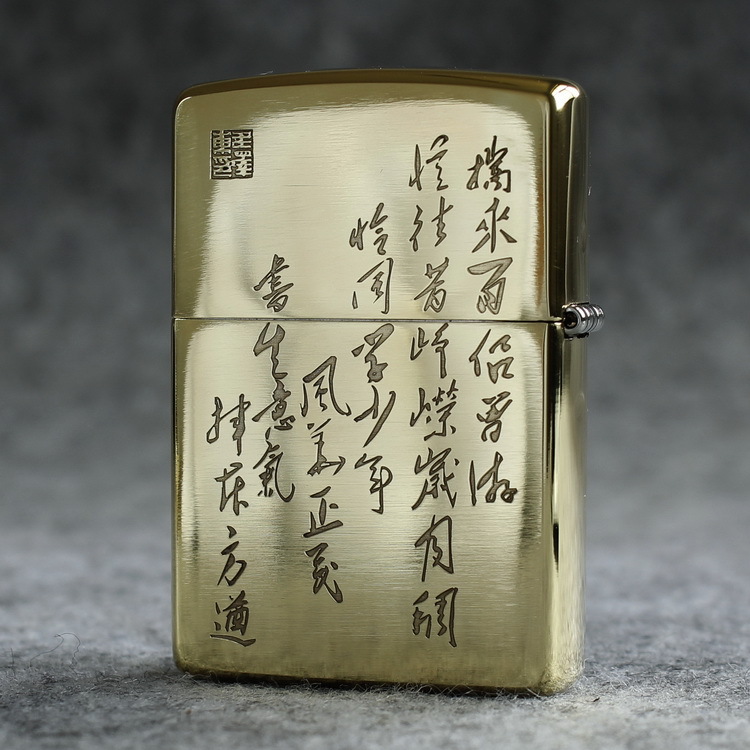 攜來百侶曾游
憶往昔崢嶸歲月稠
恰同學少年
風華正茂
書生意氣
揮斥方遒